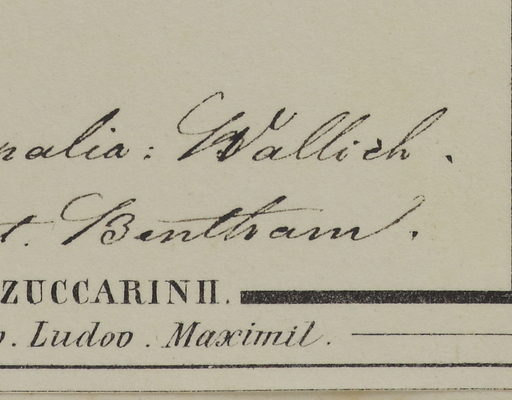 nalia: Wallich.
t. Bentham.
ZUCCARINII.
. Ludov. Maximil.